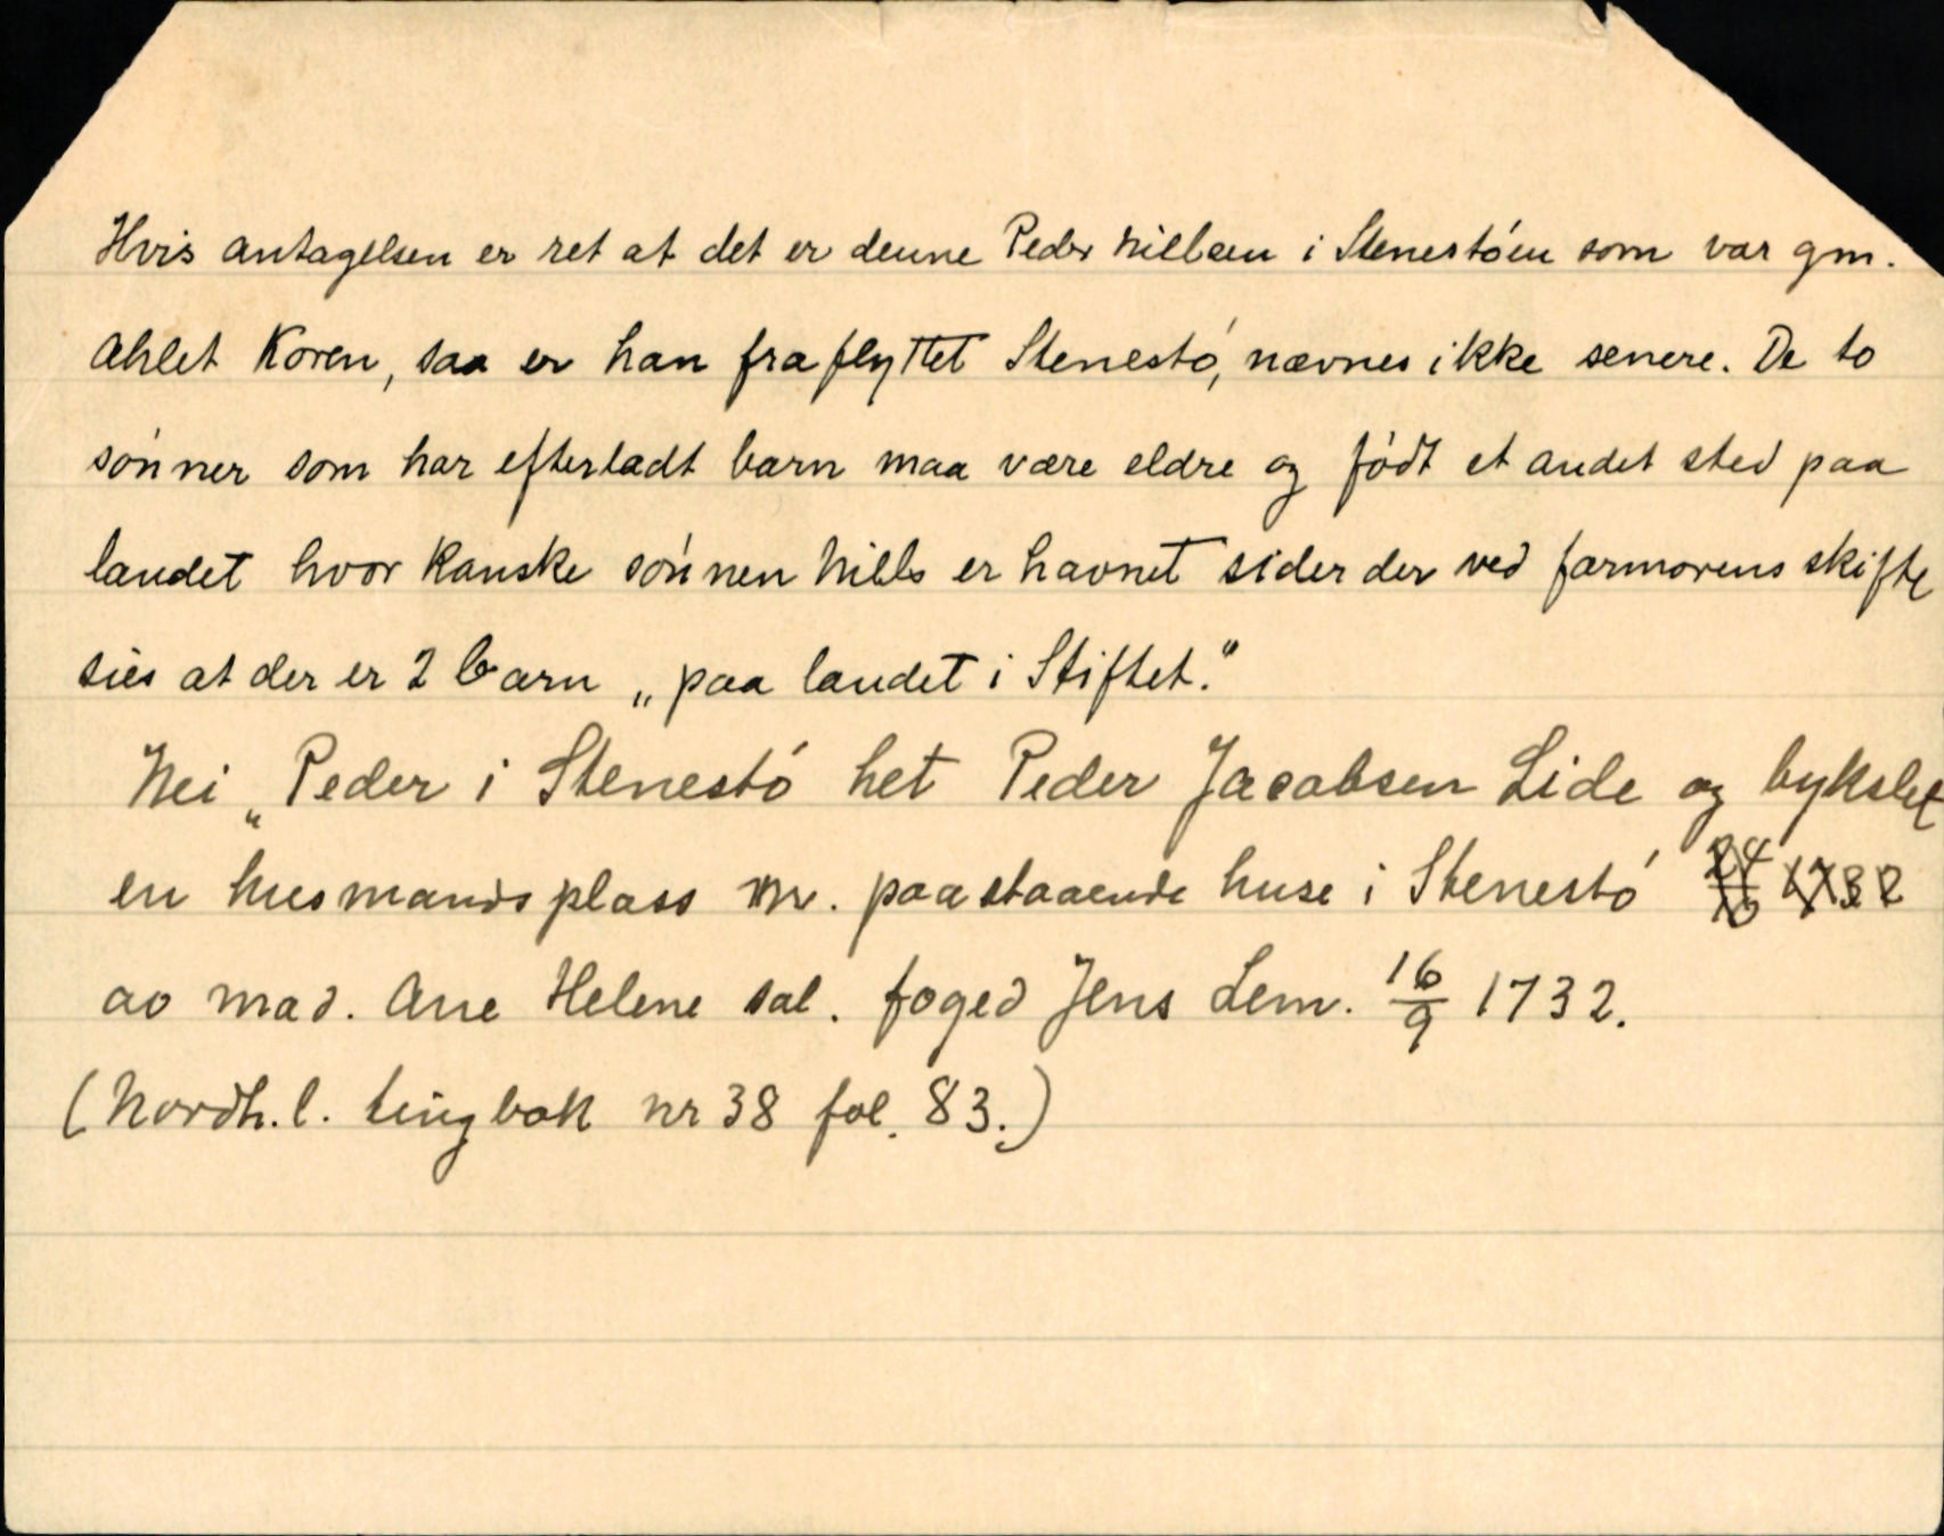 Hvis antagelsen er ret at det er denne Peder Nilsen i Stenestóen som var gm.
Ahlet Koren, saa er han fraflyttet Stenestó, nævnes ikke senere. De to
sónner som har efterladt barn maa være eldre og fódt et andet sted paa
landet hvor kanske sónnen Nills er havnet siden der ved farmorens skifte
sies at der er 2 barn „paa landet i Stiftet."
Nei „Peder i Stenestó het Peder Jacobsen Lide og bykslet
en husmandsplass m. paastaaende huse i Stenestó 1732
av mad. Ane Helene sal. foged Jens Lem. 16/9 1732.
(Nordh. l. tingbok nr 38 fol. 83.)